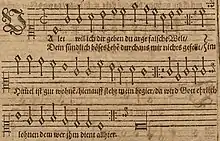 A let will ich dir geben du arge falsche Welt/
Dein sündlich böses lebē durchaus mir nichts gefält/ Im
Himel ist gut wohnē/ hienauf steht mein begier/ da wird Gott ehrlich
lohnen dem wer ihm dient allhier.